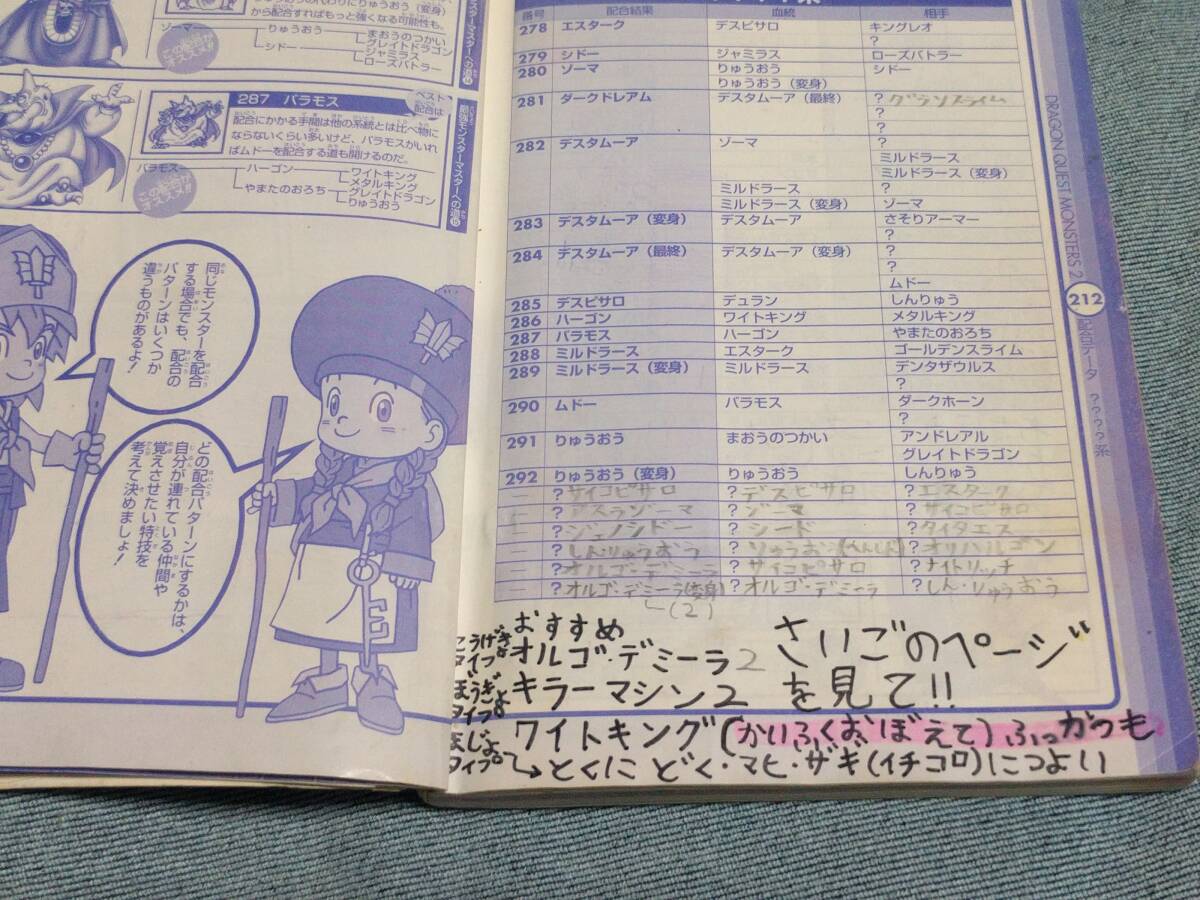 から配合すればもっと強くなる可能性も。
ゾーマー
りゅうおう
まおうのつかい
グレイトドラゴン
シドー
ジャミラス
ローズバトラー
最強モンスターマスターへの道⑮
287 バラモス
ベスト
配合は
配合にかかる手間は他の系統とは比べ物に
ならないくらい多いけど、バラモスがいれ
ばムドーを配合する道も開けるのだ。
バラモスー
ハーゴン
ワイトキング
メタルキング
やまたのおろち
グレイトドラゴン
りゅうおう
この配合が
オススメ!!
同じモンスターを配合
する場合でも、配合の
パターンはいくつか
違うものがあるよ!
どの配合パターンにするかは、
自分が連れている仲間や
覚えさせたい特技を
考えて決めましょ!
番号 配合結果 血統 相手
278 エスターク デスピサロ キングレオ
?
279 シドー ジャミラス ローズバトラー
280 ゾーマ りゅうおう シドー
りゅうおう(変身)
281 ダークドレアム デスタムーア(最終) ? グランスライム
?
?
282 デスタムーア ゾーマ ?
ミルドラース
ミルドラース(変身)
ミルドラース ?
ミルドラース(変身) ゾーマ
283 デスタムーア(変身) デスタムーア さそりアーマー
?
284 デスタムーア(最終) デスタムーア(変身) ?
?
ムドー
285 デスピサロ デュラン しんりゅう
286 ハーゴン ワイトキング メタルキング
287 バラモス ハーゴン やまたのおろち
288 ミルドラース エスターク ゴールデンスライム
289 ミルドラース(変身) ミルドラース デンタザウルス
?
290 ムドー バラモス ダークホーン
?
291 りゅうおう まおうのつかい アンドレアル
グレイトドラゴン
292 りゅうおう(変身) りゅうおう しんりゅう
— ? サイコピサロ ? デスピサロ ? エスターク
— ? アスラゾーマ ? ゾーマ ? サイコピサロ
— ? ジェノシドー ? シードー ? タイタニス
— ? しんりゅうおう ? りゅうおう(へんしん) ? オリハルゴン
— ? オルゴ・デミーラ ? サイコピサロ ? ナイトリッチ
— ? オルゴ・デミーラ(変身) ? オルゴ・デミーラ ? しん・りゅうおう
(2)
DRAGON QUEST MONSTERS 2
212
配合データ ????系
おすすめ
こうげき
タイプ オルゴ・デミーラ2
さいごのページ
を見て!!
ぼうぎょ
タイプ キラーマシン2
まじょ
タイプ ワイトキング(かいふくおぼえて)ふっかつも
→とくに どく・マヒ・ザキ(イチコロ)につよい